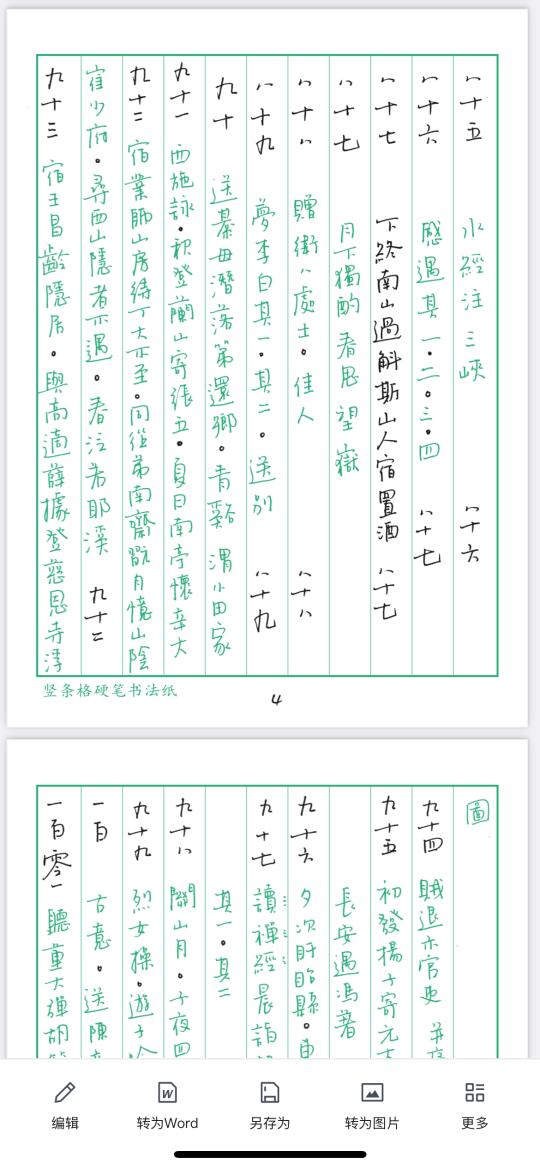 八十五 水經注三峽 八十六
八十六 感遇其一·二·三·四 八十七
八十七 下終南山過斛斯山人宿置酒 八十七
八十七 月下獨酌 春思 望嶽
八十八 贈衛八處士·佳人 八十八
八十九 夢李白其一·其二·送別 八十九
九十 送綦毋潛落第還鄉·青谿 渭川田家
九十一 西施詠·秋登蘭山寄張五·夏日南亭懷辛大
九十二 宿業師山房待丁大不至·同從弟南齋翫月憶山陰
崔少府·尋西山隱者不遇·春泛若耶溪 九十二
九十三 宿王昌齡隱居·與高適薛據登慈恩寺浮
竖条格硬笔书法纸
4
圖
九十四 賊退示官吏 并序
九十五 初發揚子寄元大
長安遇馮著
九十六 夕次盱眙縣·東
九十七 讀禪經 晨詣
其一·其二
九十八 關山月·子夜四
九十九 烈女操·遊子吟
一百 古意·送陳
一百零一 聽董大彈胡笳
编辑
转为Word
另存为
转为图片
更多